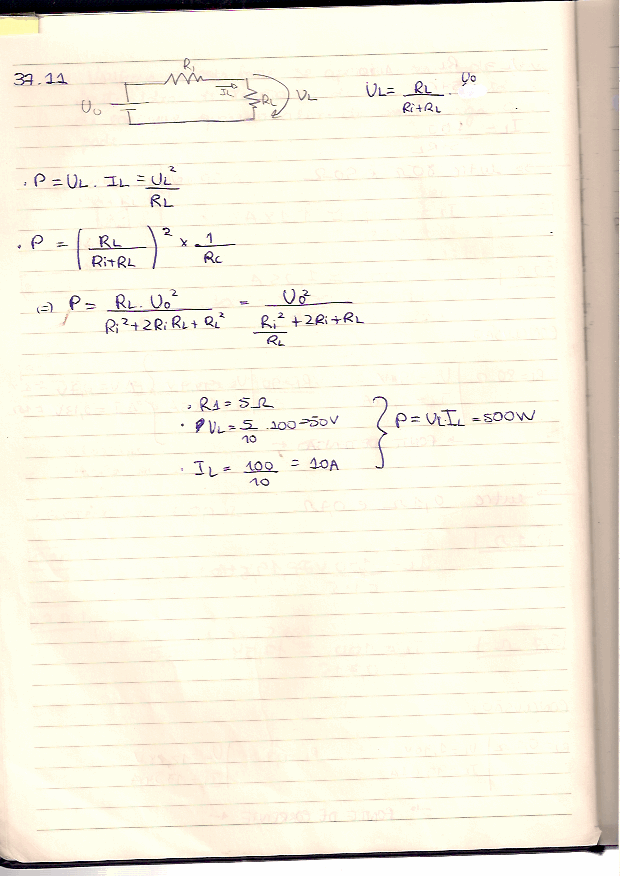 37.11
Ri
U₀
IL
RL
UL
UL = RL / (Ri+RL) · U₀
· P = UL . IL = UL² / RL
· P = (RL / (Ri+RL))² × 1 / RC
(=) P = RL . U₀² / (Ri² + 2Ri RL + RL²) = U₀² / (Ri²/RL + 2Ri + RL)
· R1 = 5 Ω
· UL = 5/10 . 100 = 50V
· IL = 100/10 = 10A
} P = UL IL = 500W